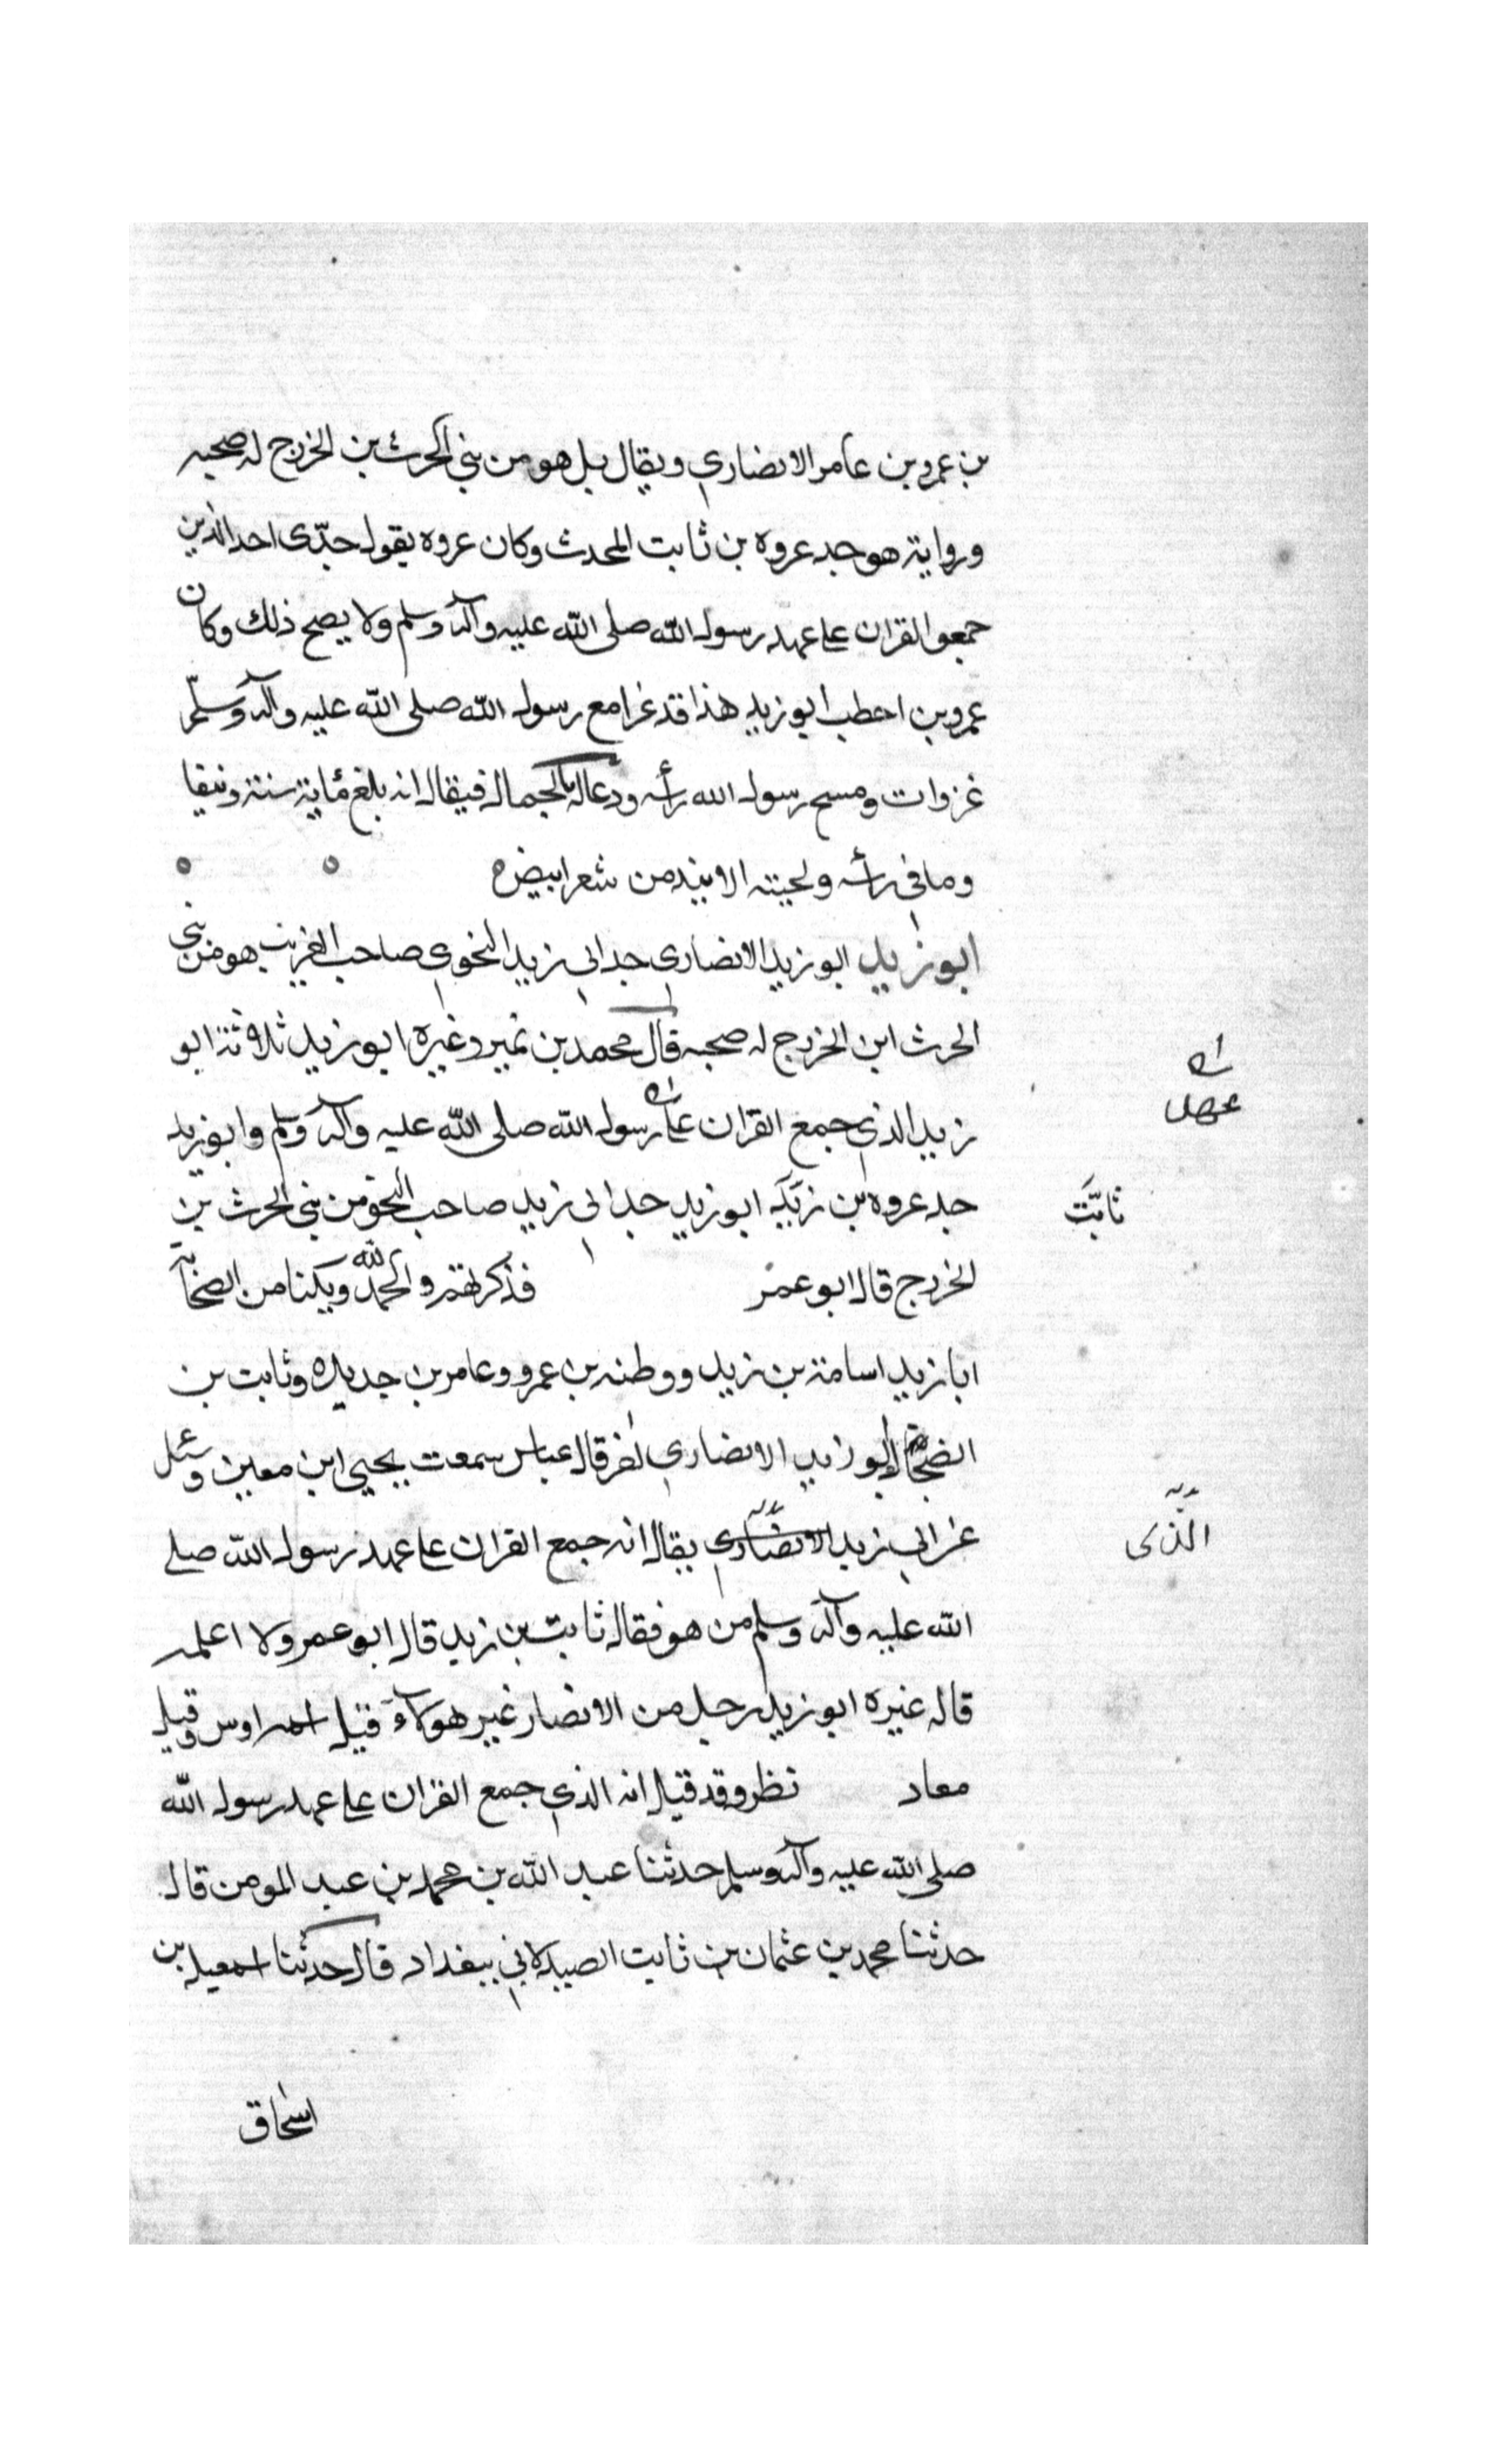 بن عمرو بن عامر الانصاري ويقال بل هو من بني الحرث بن الخزرج له صحبه
ورواية هو جد عروه بن ثابت المحدث وكان عروه يقول جدّى احد الذين
جمعو القران على عهد رسول الله صلى الله عليه وآله وسلم ولا يصح ذلك وكان
عمرو بن احطب ابو زيد هذا قد غزا مع رسول الله صلى الله عليه وآله وسلّم
غزوات ومسح رسول الله رأسه ودعا له بالجمال فيقال انه بلغ مأية سنة ونيفا
وما في رأسه ولحيته الا نبذ من شعر ابيض ه
ابو زيد ابو زيد الانصاري جد ابي زيد النحوي صاحب الغريب هو من بني
الحرث ابن الخزرج له صحبه قال محمد بن نمير وغيره ابو زيد ثلاثة ابو
زيد الذي جمع القران على رسول الله صلى الله عليه وآله وسلم وابو زيد
عهد
جد عروه بن زيد ابو زيد جد ابي زيد صاحب النحو من بني الحرث بن
ثابت
الخزرج قال ابو عمر فذكرلهم والحمد لله ويكنا من الصحابة
ابا زيد اسامة بن زيد ووطنه بن عمرو وعامر بن جديده وثابت بن
الضحاك ابو زيد الانصاري اخر قال عباس سمعت يحيى ابن معين وسئل
عن ابي زيد الانصاري يقال انه جمع القران على عهد رسول الله صلى
الذى
الله عليه وآله وسلم من هو فقال ثابت بن زيد قال ابو عمر ولا اعلمه
قاله غيره ابو زيد رجل من الانصار غير هولاء قيل اسمه اوس وقيل
معاد نظر وقد قيل انه الذي جمع القران على عهد رسول الله
صلى الله عليه وآله وسلم حدثنا عبد الله بن محمد بن عبد المومن قال
حدثنا محمد بن عثمان بن ثابت الصيدلاني ببغداد قال حدثنا اسمعيل بن
اسحاق